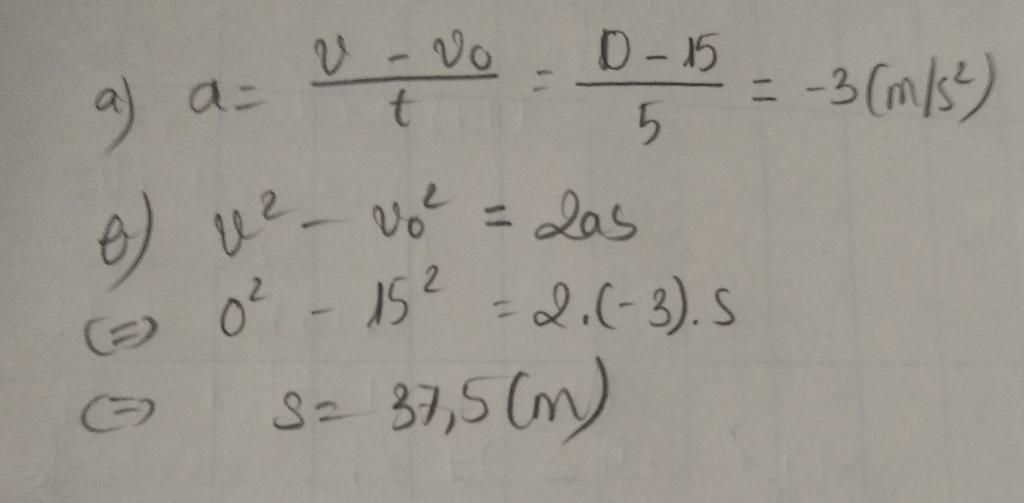 a) a = (v - v₀)/t = (0 - 15)/5 = -3 (m/s²)
b) v² - v₀² = 2as
(=) 0² - 15² = 2.(-3).s
(=) s = 37,5 (m)